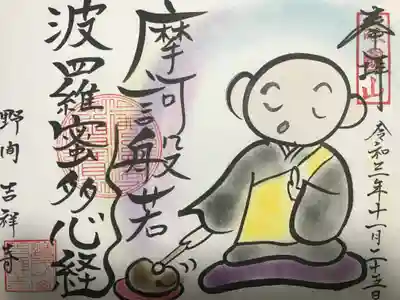 奉拝
令和三年十一月二十三日
摩訶般若
波羅蜜多心経
野間 吉祥寺